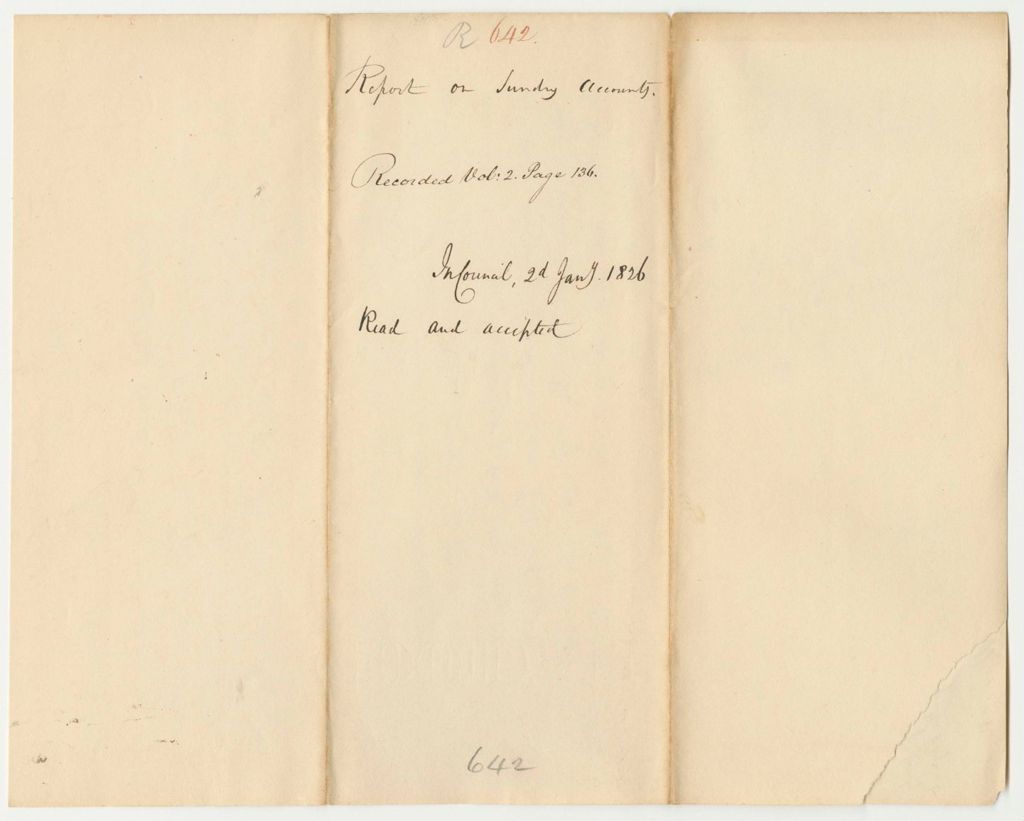 R 642.
Report on Sundry Accounts.
Recorded Vol: 2. Page 136.
In Council, 2d Jany. 1826
Read and accepted
642